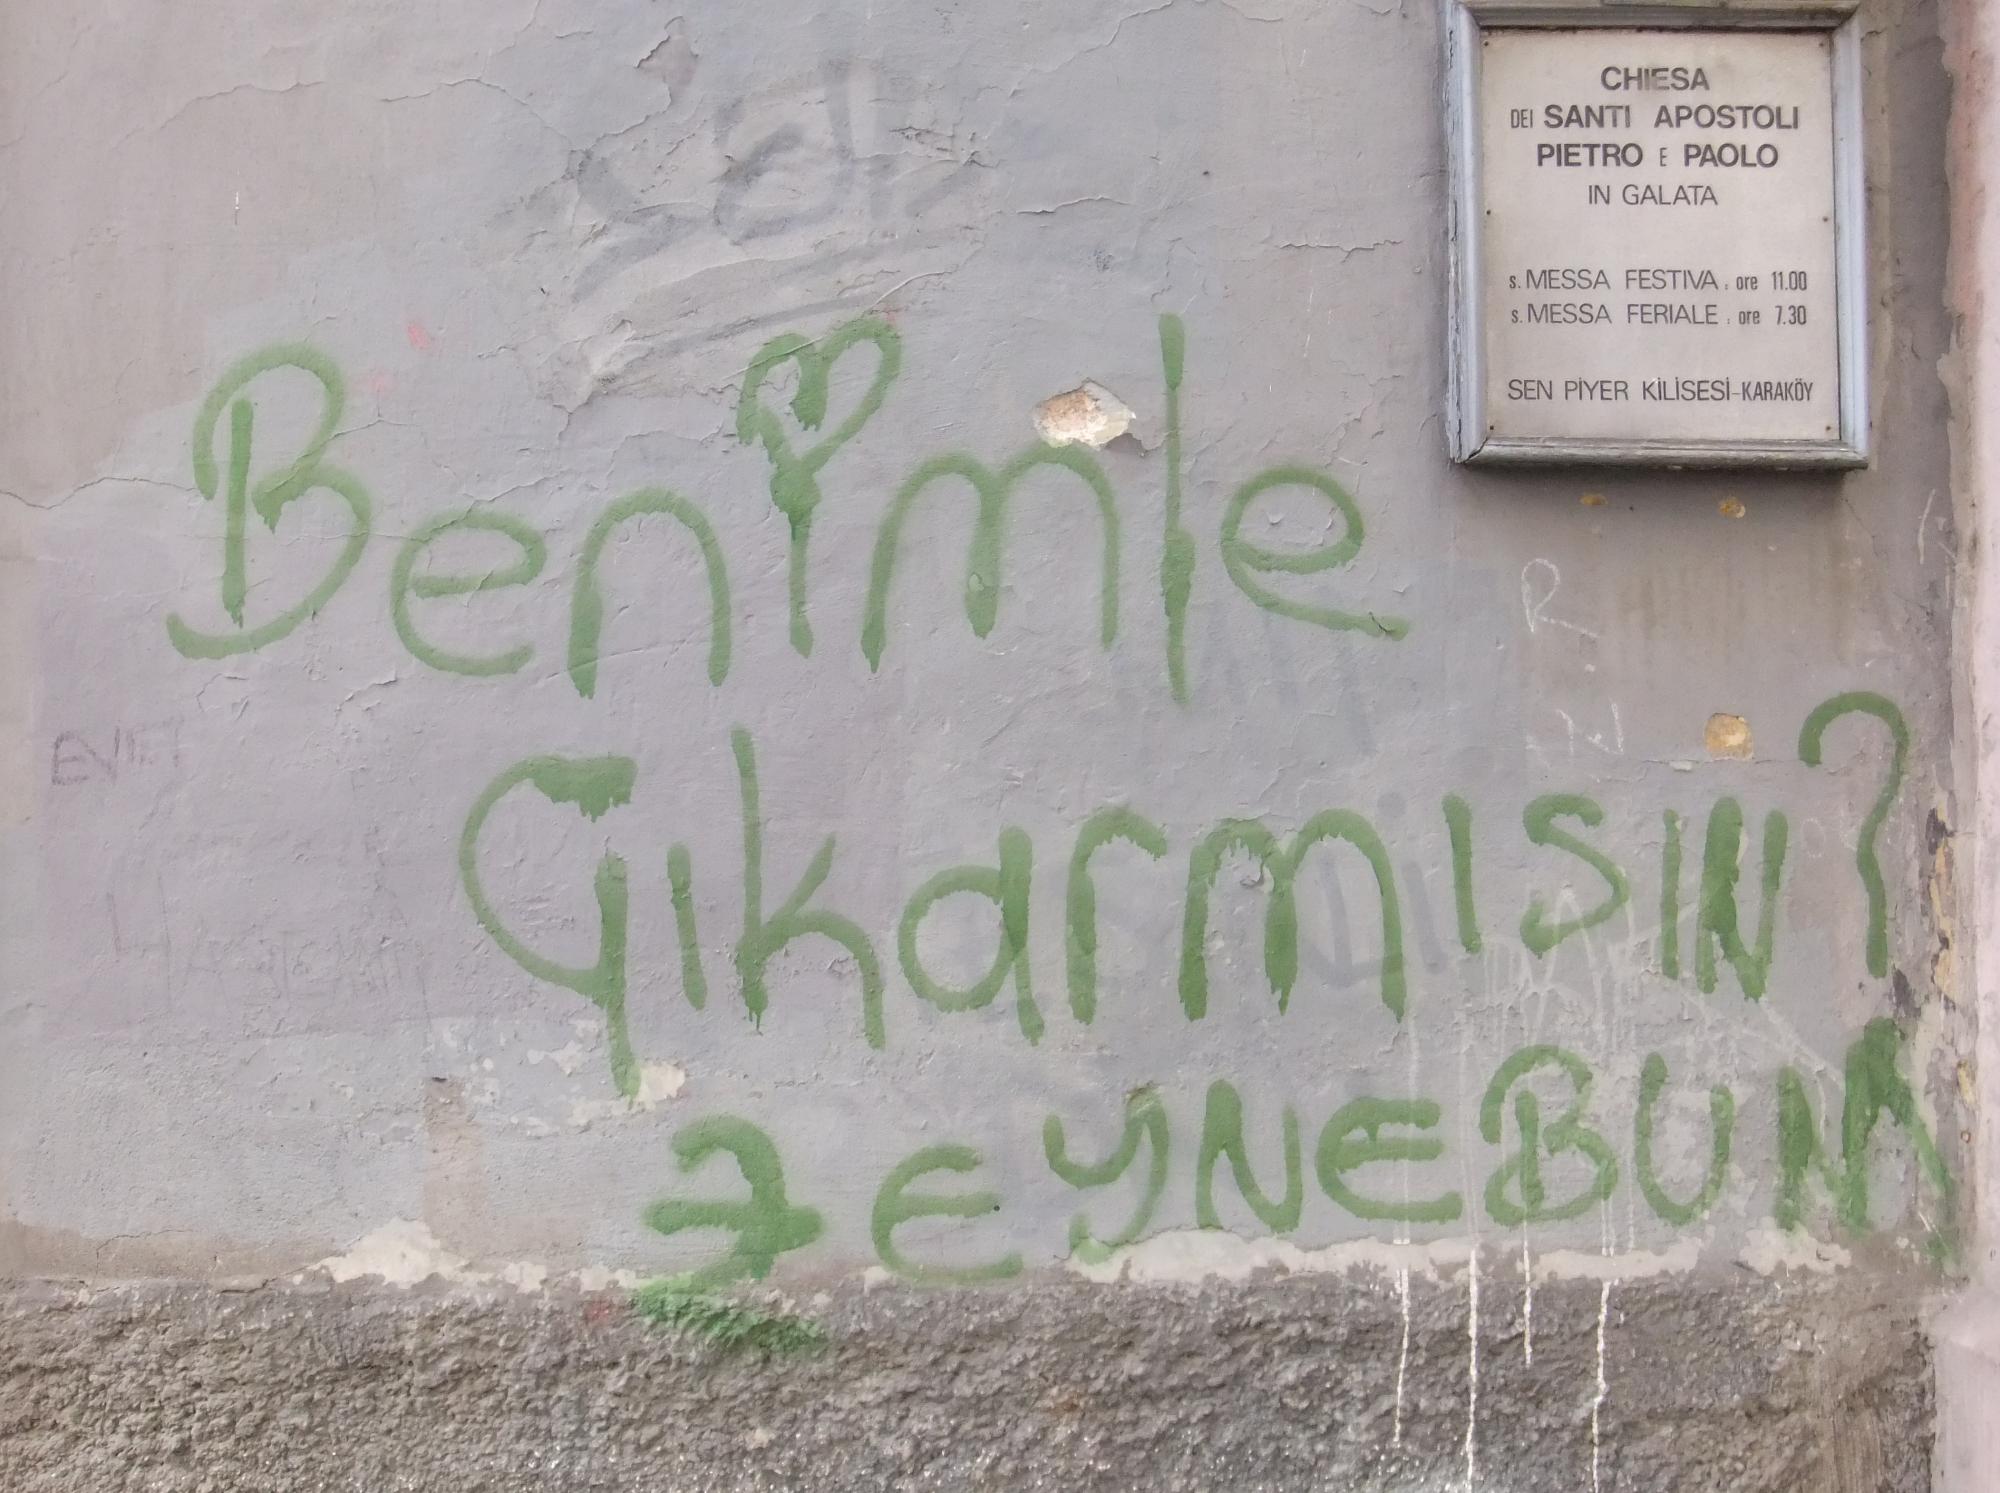 CHIESA
DEI SANTI APOSTOLI
PIETRO E PAOLO
IN GALATA
s. MESSA FESTIVA : ore 11.00
s. MESSA FERIALE : ore 7.30
SEN PİYER KİLİSESİ-KARAKÖY
Benimle
Çıkarmısın?
ZEYNEBUM
EVET
R
N